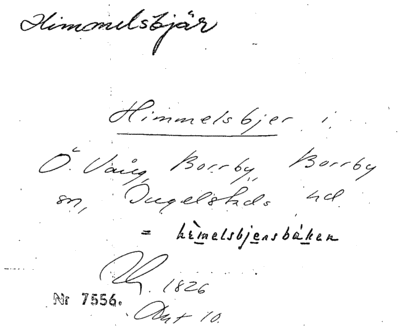 Himmelsbjär
Himmelsbjer i
Ö. Vång, Borrby, Borrby
sn, Ingelstads hd.
= hèmelsbjersbáken
1826
Nr 7556. Akt 10.